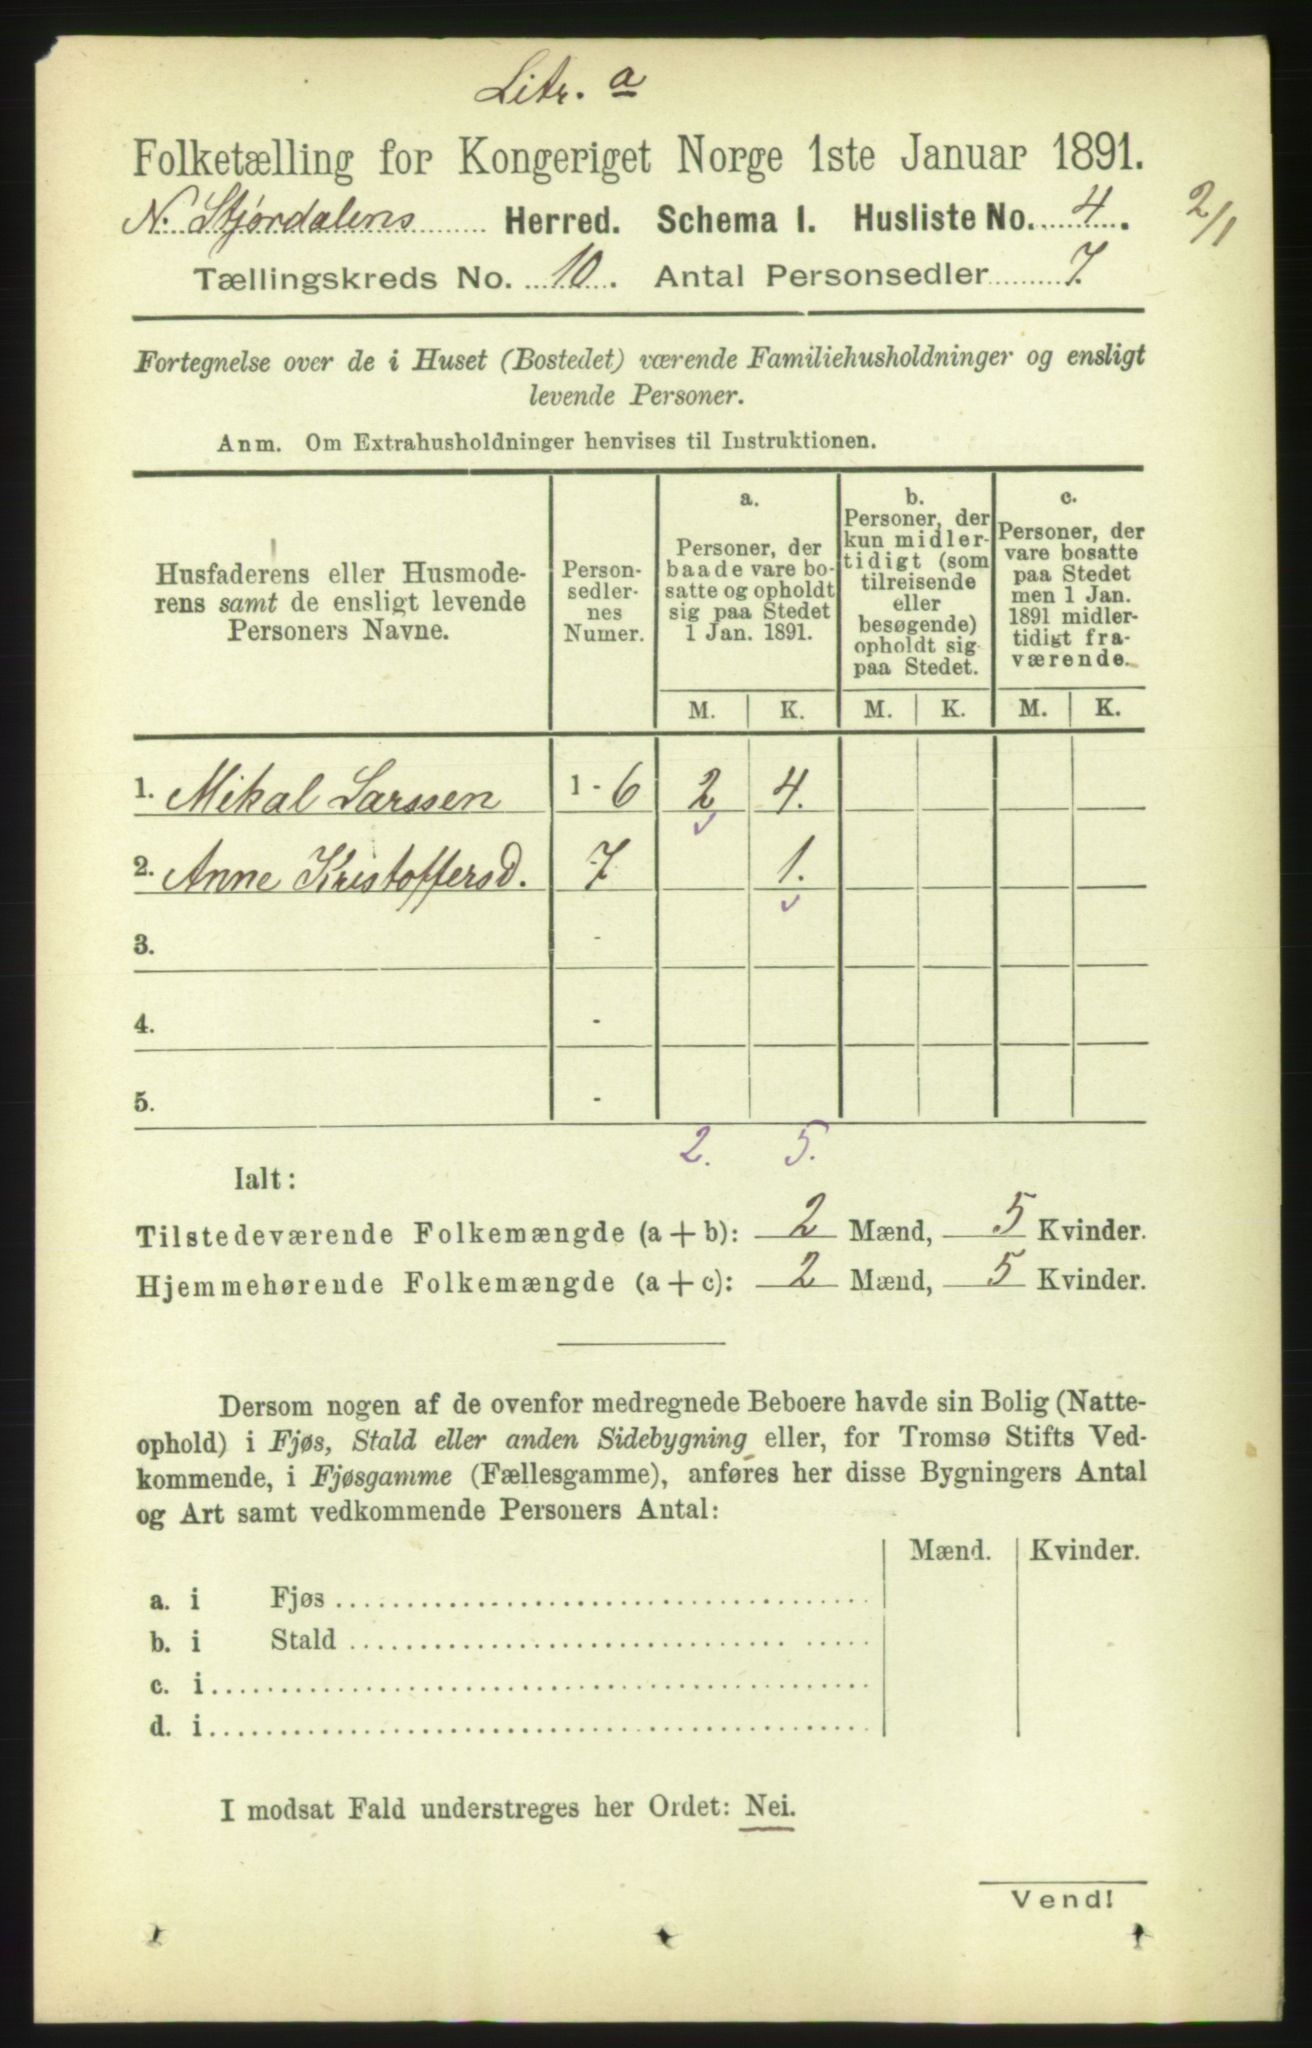 Litr. a
Folketælling for Kongeriget Norge 1ste Januar 1891.
N. Stjørdalens Herred. Schema I. Husliste No. 4.
2/1
Tællingskreds No. 10. Antal Personsedler 7.
Fortegnelse over de i Huset (Bostedet) værende Familiehusholdninger og ensligt
levende Personer.
Anm. Om Extrahusholdninger henvises til Instruktionen.
Husfaderens eller Husmode-
rens samt de ensligt levende
Personers Navne.
Person-
sedler-
nes
Numer.
a.
Personer, der
baade vare bo-
satte og opholdt
sig paa Stedet
1 Jan. 1891.
b.
Personer, der
kun midler-
tidigt (som
tilreisende
eller
besøgende)
opholdt sig
paa Stedet.
c.
Personer, der
vare bosatte
paa Stedet
men 1 Jan.
1891 midler-
tidigt fra-
værende.
M. K. M. K. M. K.
1. Mikal Larssen 1 - 6 2 4.
2. Anne Kristoffersd. 7 1.
3. -
4. -
5. -
2. 5.
Ialt:
Tilstedeværende Folkemængde (a + b): 2 Mænd, 5 Kvinder.
Hjemmehørende Folkemængde (a + c): 2 Mænd, 5 Kvinder.
Dersom nogen af de ovenfor medregnede Beboere havde sin Bolig (Natte-
ophold) i Fjøs, Stald eller anden Sidebygning eller, for Tromsø Stifts Ved-
kommende, i Fjøsgamme (Fællesgamme), anføres her disse Bygningers Antal
og Art samt vedkommende Personers Antal:
Mænd. Kvinder.
a. i Fjøs
b. i Stald
c. i
d. i
I modsat Fald understreges her Ordet: Nei.
Vend!